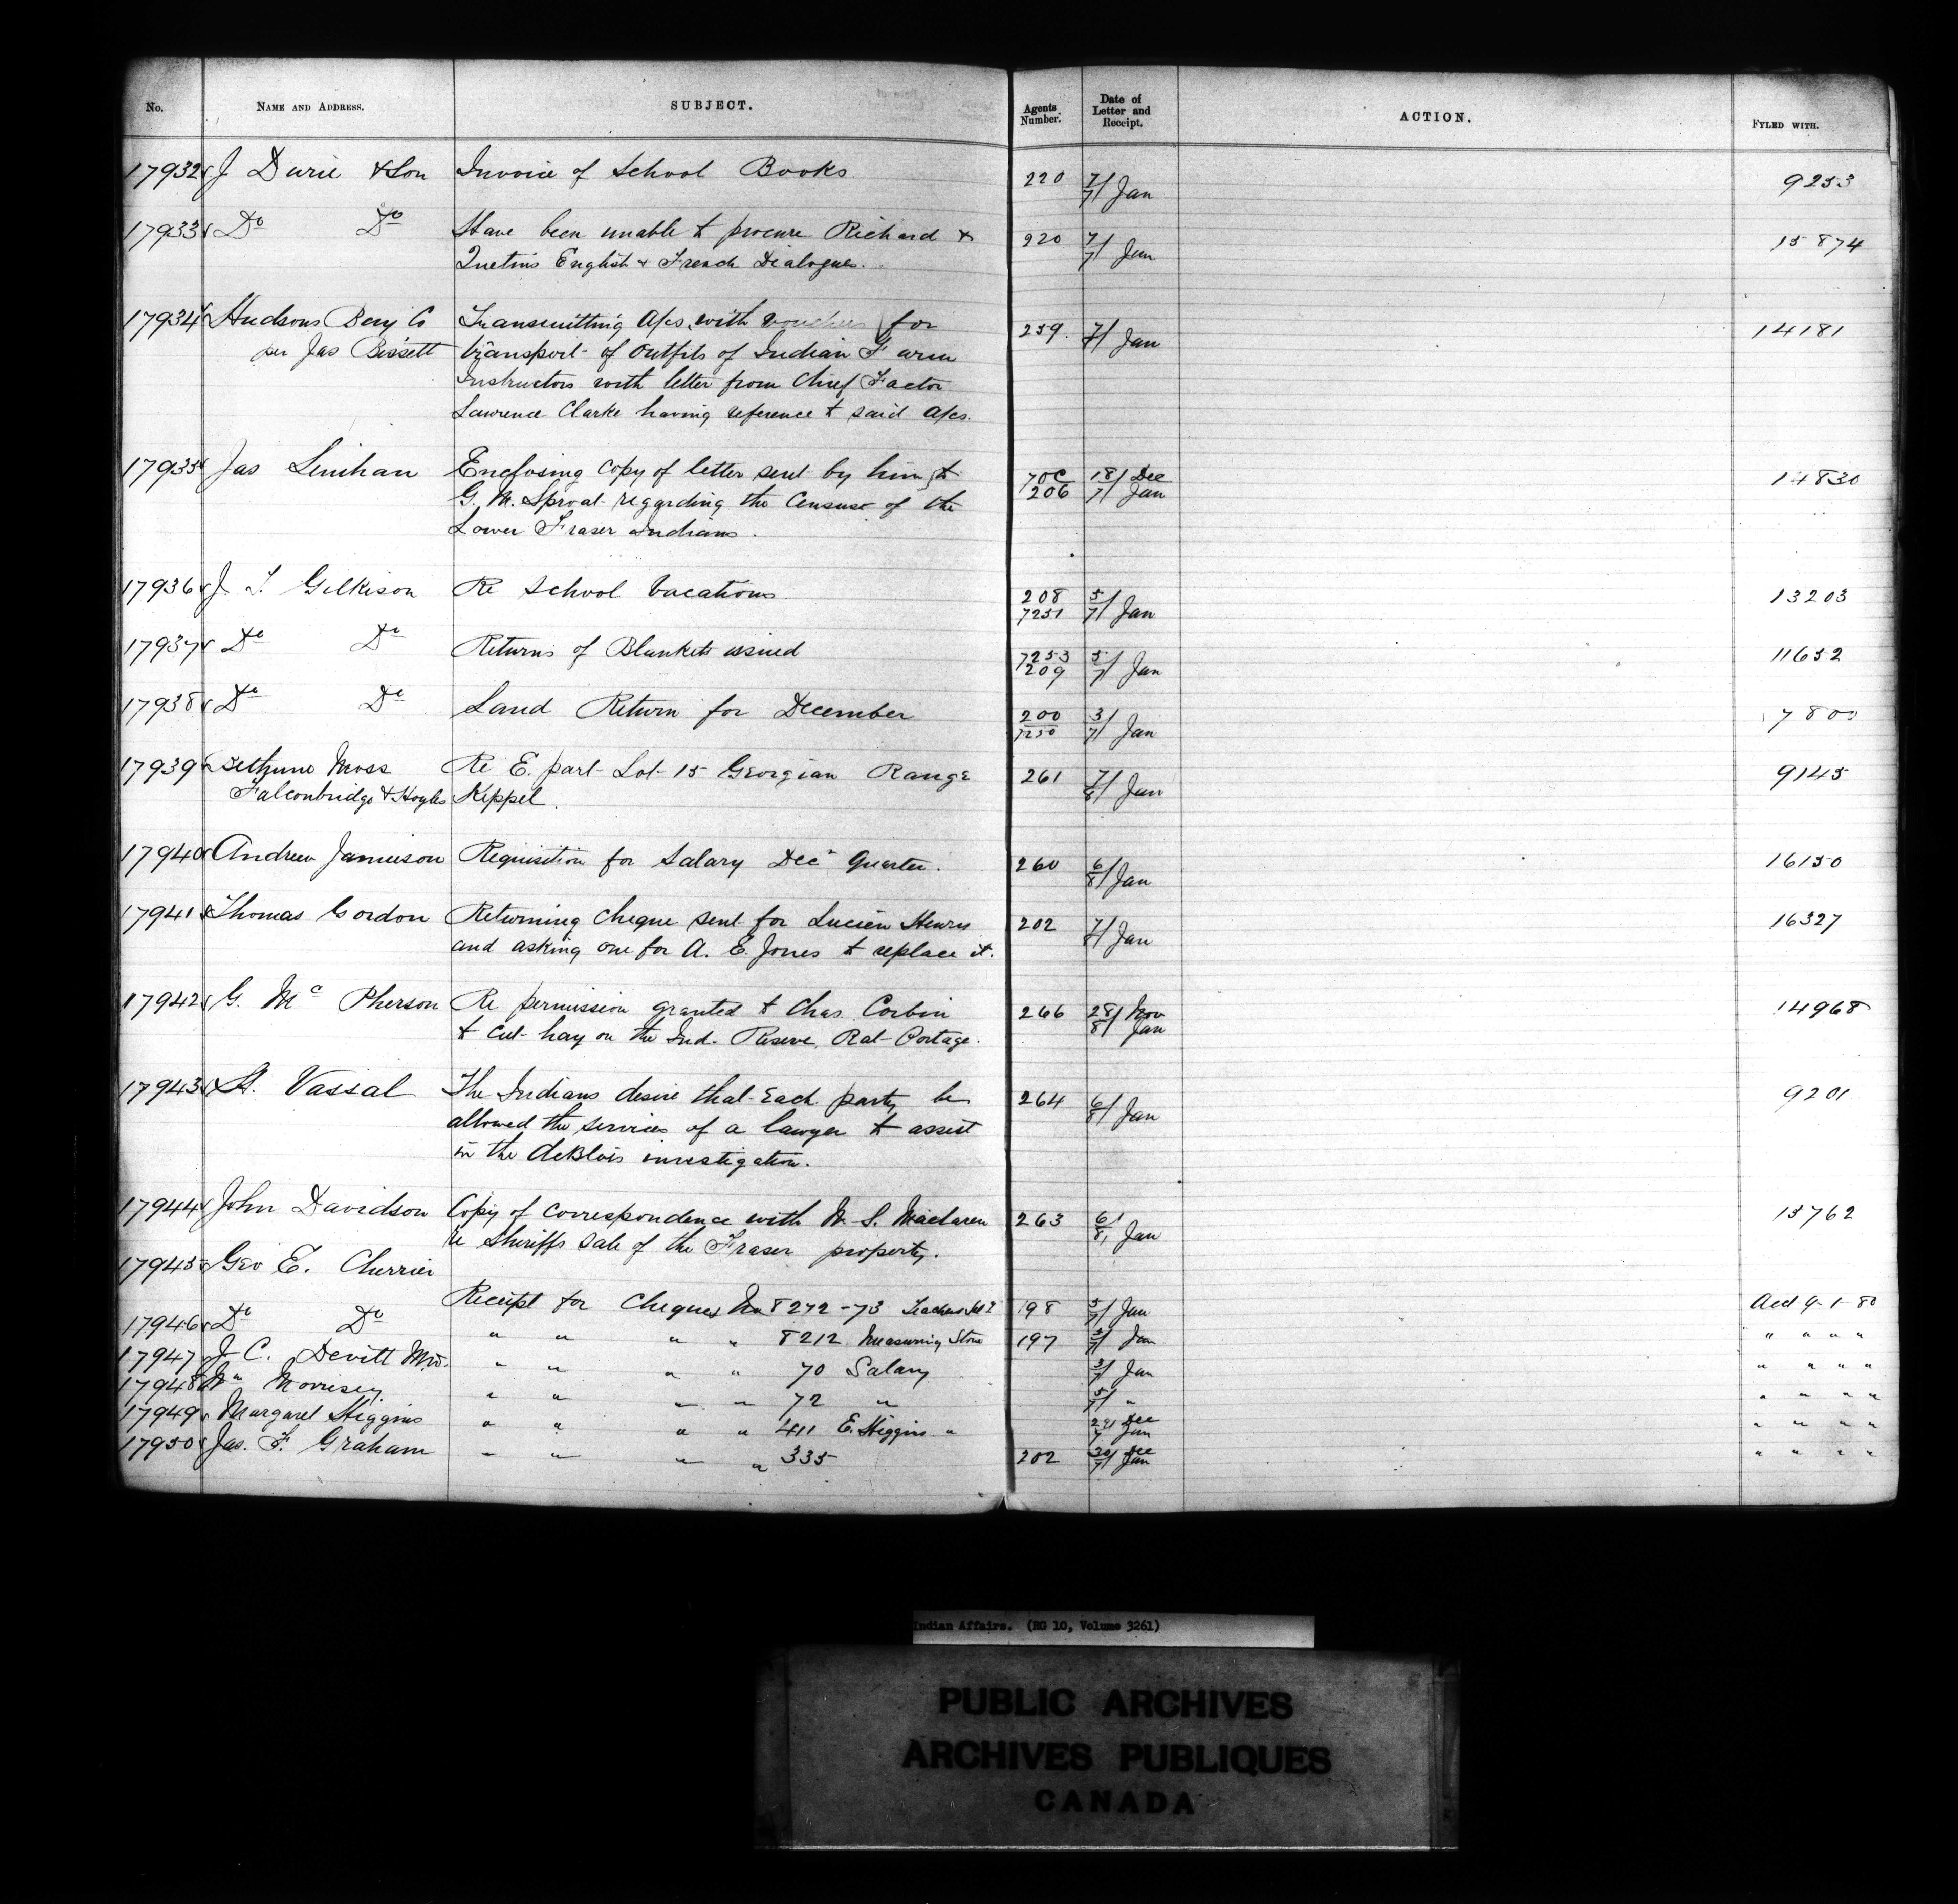 No. NAME AND ADDRESS. SUBJECT. Agents Number. Date of Letter and Receipt. ACTION. FYLED WITH.
17932 J Durie & Son Invoice of School Books 220 7/7 Jan 9253
17933 Do Do Have been unable to procure Richard & 220 7/7 Jan 15874
Quetin's English & French Dialogues.
17934 Hudsons Bay Co Transmitting A/cs. with vouchers for 259. 7/ Jan 14181
per Jas Bissett transport of outfits of Indian Farm
Instructors with letter from Chief Factor
Lawrence Clarke having reference to said A/cs.
17935 Jas Lenihan Enclosing copy of letter sent by him to 70C 18/ Dec 14830
G. M. Sproat regarding the Census of the 206 7/ Jan
Lower Fraser Indians.
17936 J. T. Gilkison Re School Vacations 208 5/ 13203
7251 7/ Jan
17937 Do Do Returns of Blankets issued 7253 5/ 11652
209 7/ Jan
17938 Do Do Land Return for December 200 3/ 7800
7250 7/ Jan
17939 Bethune Moss Re E. part Lot 15 Georgian Range 261 7/8/ Jan 9145
Falconbridge & Hoyles Keppel.
17940 Andrew Jamieson Requisition for Salary Decr Quarter. 260 6/8/ Jan 16150
17941 Thomas Gordon Returning cheque sent for Lucien Henry 202 7/ Jan 16327
and asking one for A. E. Jones to replace it.
17942 G. Mc Pherson Re permission granted to Chas. Corbin 266 28/ Nov 14968
to cut hay on the Ind. Reserve, Rat Portage. 8/ Jan
17943 H. Vassal The Indians desire that each party be 264 6/8/ Jan 9201
allowed the services of a lawyer to assist
in the deBlois investigation.
17944 John Davidson Copy of correspondence with W. S. Maclaren 263 6/8/ Jan 13762
re Sheriffs Sale of the Fraser property.
17945 Geo E. Cherrier
Receipt for Cheques No 8272-73 Teachers 198 5/7/ Jan Acct 9-1-80
17946 Do Do " " " " 8212 Measuring Stone 197 5/7/ Jan " " " "
17947 J C. Devitt MD. " " " " 70 Salary 3/7/ Jan " " " "
17948 Wm Morrisey " " " " 72 " 5/7/ " " " " "
17949 Margaret Higgins " " " " 411 E. Higgins " 29/ Dec 7/ Jan " " " "
17950 Jas. F. Graham " " " " 335 202 30/ Dec 7/ Jan " " " "
Indian Affairs. (RG 10, Volume 3261)
PUBLIC ARCHIVES
ARCHIVES PUBLIQUES
CANADA